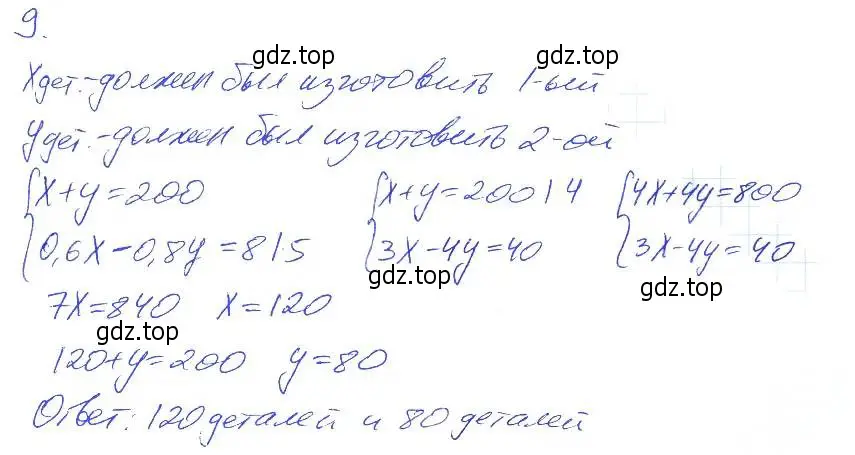 9.
gdz.top gdz.top
Xдет.-должен был изготовить 1-ый
Yдет.-должен был изготовить 2-ой
{x+y=200 {x+y=200|4 {4x+4y=800
{0,6x-0,8y=8|5 {3x-4y=40 {3x-4y=40
gdz.top gdz.top
7x=840 x=120
gdz.top
120+y=200 y=80
Ответ: 120 деталей и 80 деталей
gdz.top